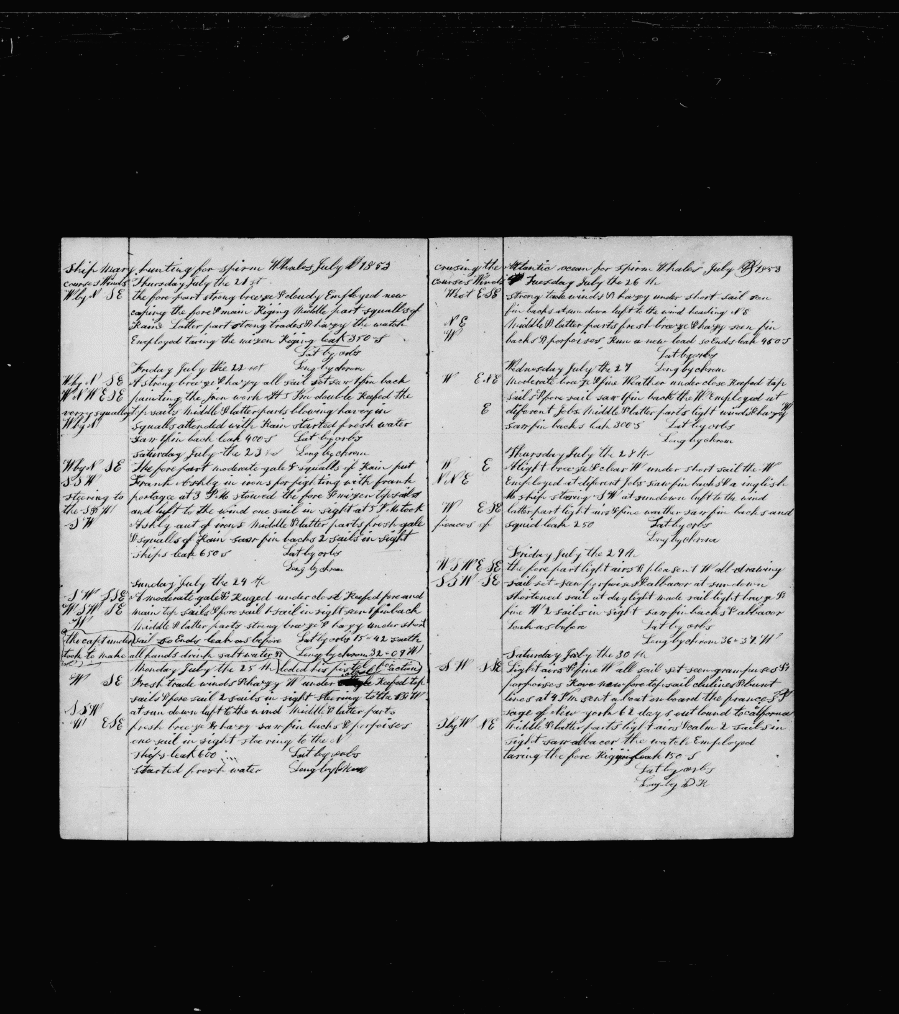 Ship Mary hunting for spirm Whales July 1853
courses Winds Thursday July the 21 st
W by N SE the fore part strong breeze & cloudy Employed new
caping the fore & main Riging Middle part squalls of
Rain Latter part strong trades & hazy the watch
Employed taring the mizen Riging leak 350 S
Lat by orbs
Friday July the 22 Long by chrom
W by N SE A strong breeze & hazy all sail set saw fin back
W N W ESE painting the iron work At 5 PM double Reefed the
verry squally top sails Middle & latter parts blowing heavy in
W by N squalls attended with Rain started fresh water
saw fin back leak 400 S Lat by orbs
Saturday July the 23 Long by chrom
W by N SE The fore part moderate gale & squalls of Rain put
S S W Frank & Ashly in irons for fighting with frank
steering to portagee at 3 PM stowed the fore & mizen topsails
the and left to the wind one sail in sight at 5 PM took
S W Ashly out of irons Middle & latter parts fresh gale
& squalls of Rain saw fin backs 2 sails in sight
Ships leak 650 S Lat by orbs
Long by chrom
Sunday July the 24 th
S W SSE A moderate gale & Ruged under close Reefed fore and
W S W SE main top sails & fore sail 1 sail in sight seen fin back
W Middle & latter parts strong breeze & hazy under short
the capt under sail So Ends leak as before Lat by orbs 15 = 42 south
took to make all hands drink salt water & Long by chrom 32 = 09 W
Monday July the 25 th loded his pistols
W SE Fresh trade winds & hazy W under Reefed top
sails & fore sail 2 sails in sight steering to the
S S W at sun down left to the wind Middle & latter parts
W ESE fresh breeze & hazy saw fin backs & porpoises
one sail in sight steering to the N
Ships leak 600 Lat by orbs
started fresh water Long by
crusing the Atlantic ocean for spirm Whales July 1853
courses Winds Tuesday July the 26 th
West E SE strong trade winds & hazy under short sail seen
fin backs at sun down left to the wind heading N E
N E Middle & latter parts fresh breeze & hazy seen fin
W backs & porpoises Run a new lead so Ends leak 450 S
Lat by orbs
Wednesday July the 27 Long by chrom
W ENE Moderate breeze & fine Weather under close Reefed top
Sails & fore sail saw fin back the W Employed at
E diferent Jobs Middle & latter parts light winds & hazy W
saw fin backs leak 300 S Lat by orbs
Long by chrom
Thursday July the 28
W E A light breeze & clear W under short sail the W
N N E Employed at diferent Jobs saw fin backs & a inglish
Ms ship steering S W at sun down left to the wind
W E SE latter part light airs & fine weather saw fin backs and
peaces of squid leak 250 Lat by orbs
Long by chrom
Friday July the 29 th
W S W E SE the fore part light airs & pleasent W all drawing
S S W SE sail set seen porpoises & albacor at sun down
shortened sail at daylight made sail light breeze &
fine W 2 sails in sight saw fin backs & albacor
Leak as before Lat by orbs
Long by chrom 36 = 37 W
Saturday July the 30 th
S W SSE Light airs & fine W all sail set seen grampuses &
porpoises Rove new fore top sail clulines & bunt
lines at 4 PM sent a boat on board the
of New York 62 days out bound to california
S by W NE Middle & latter parts light airs & calm 2 sails in
sight saw albacor the watch Employed
taring the fore Riging leak 150 S
Lat by orbs
Long by D R